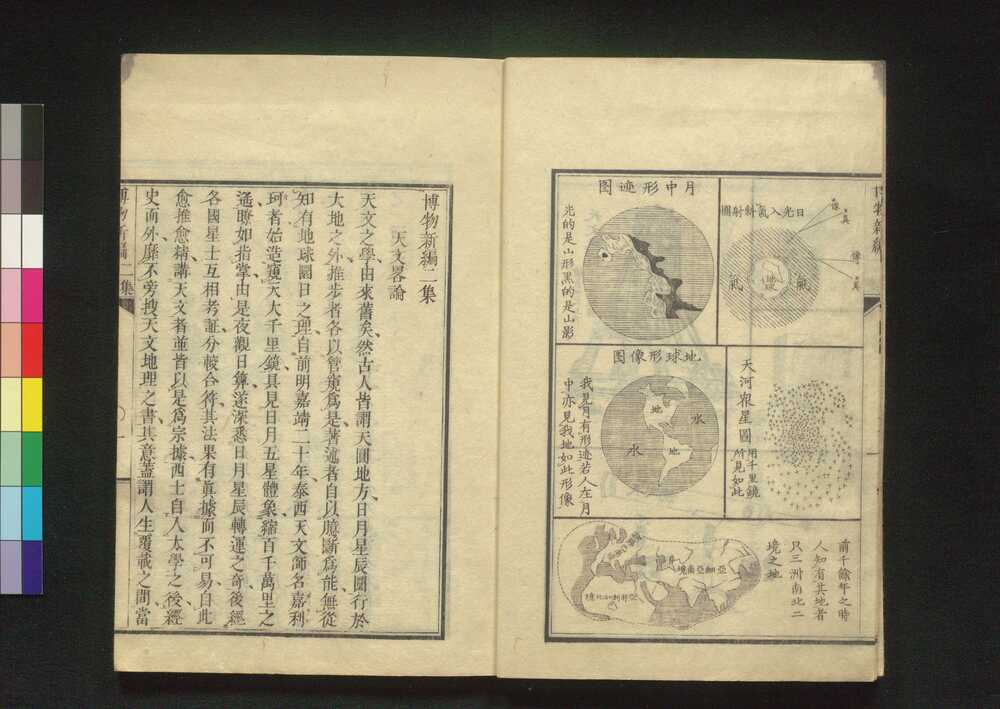 日光入氣斜射圖
像
真
像
真
氣
地球
氣
月中形迹图
光的是山形黑的是山影
天河衆星圖
用千里鏡
所見如此
地球形像图
我見月有形迹若人在月
中亦見我地如此形像
地
水
水
地
前千餘年之時
人知有其地者
只三洲南北二
境之地
博物新編二集
天文畧論
天文之學由來舊矣然古人皆謂天圓地方日月星辰圜行於
大地之外推步者各以管窺爲是著述者自以臆斷爲能無從
知有地球圜日之理自前明嘉靖二十年泰西天文師名嘉利
珂者始造窺天大千里鏡具見日月五星體象縮百千萬里之
遙瞭如指掌由是夜觀日算遂深悉日月星辰轉運之奇後經
各國星士互相考証分較合符其法果有眞據而不可易自此
愈推愈精講天文者並皆以是爲宗據西士自入太學之後經
史而外靡不旁搜天文地理之書其意蓋謂人生覆載之間當
博物新編二集